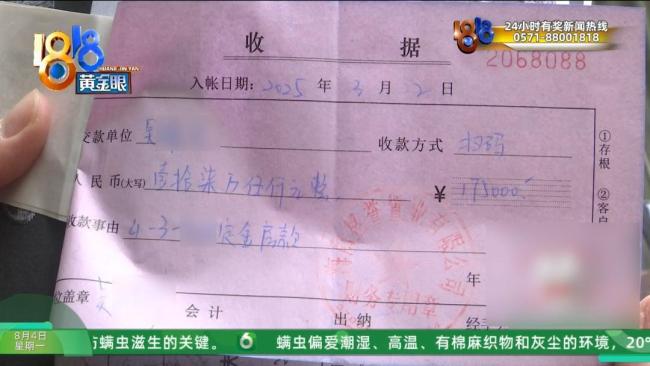 1818
HUANG JIN YAN
黄金眼
24小时有奖新闻热线
0571-88001818
收 据
2068088
入帐日期: 2025 年 3 月 2 日
交款单位
收款方式 扫码
人民币(大写) 壹拾柒万伍仟元整
¥ 175000.
收款事由 4-3- 定金房款
年
财务专用章
位盖章
会计
出纳
①存根
②客户
8月4日
星期一
方螨虫滋生的关键。
6
螨虫偏爱潮湿、高温、有棉麻织物和灰尘的环境，20°